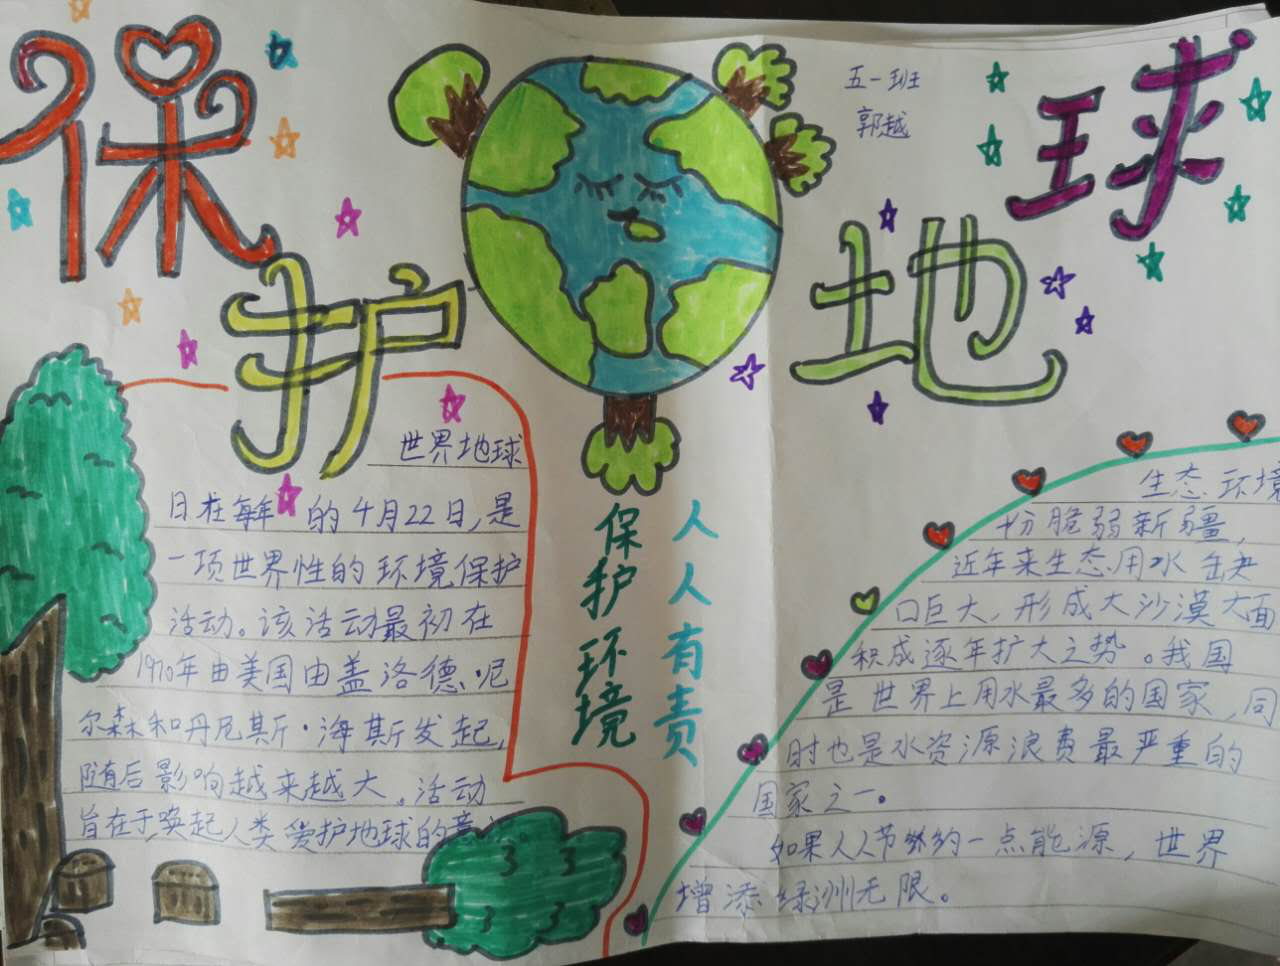 保护地球
五一班
郭越
世界地球
日在每年的4月22日,是
一项世界性的环境保护
活动。该活动最初在
1970年由美国由盖洛德·尼
尔森和丹尼斯·海斯发起,
随后影响越来越大。活动
旨在于唤起人类爱护地球的意
保护环境
人人有责
生态环境
十分脆弱新疆,
近年来生态用水缺
口巨大,形成大沙漠大面
积成逐年扩大之势。我国
是世界上用水最多的国家,同
时也是水资源浪费最严重的
国家之一。
如果人人节约一点能源,世界
增添绿洲无限。